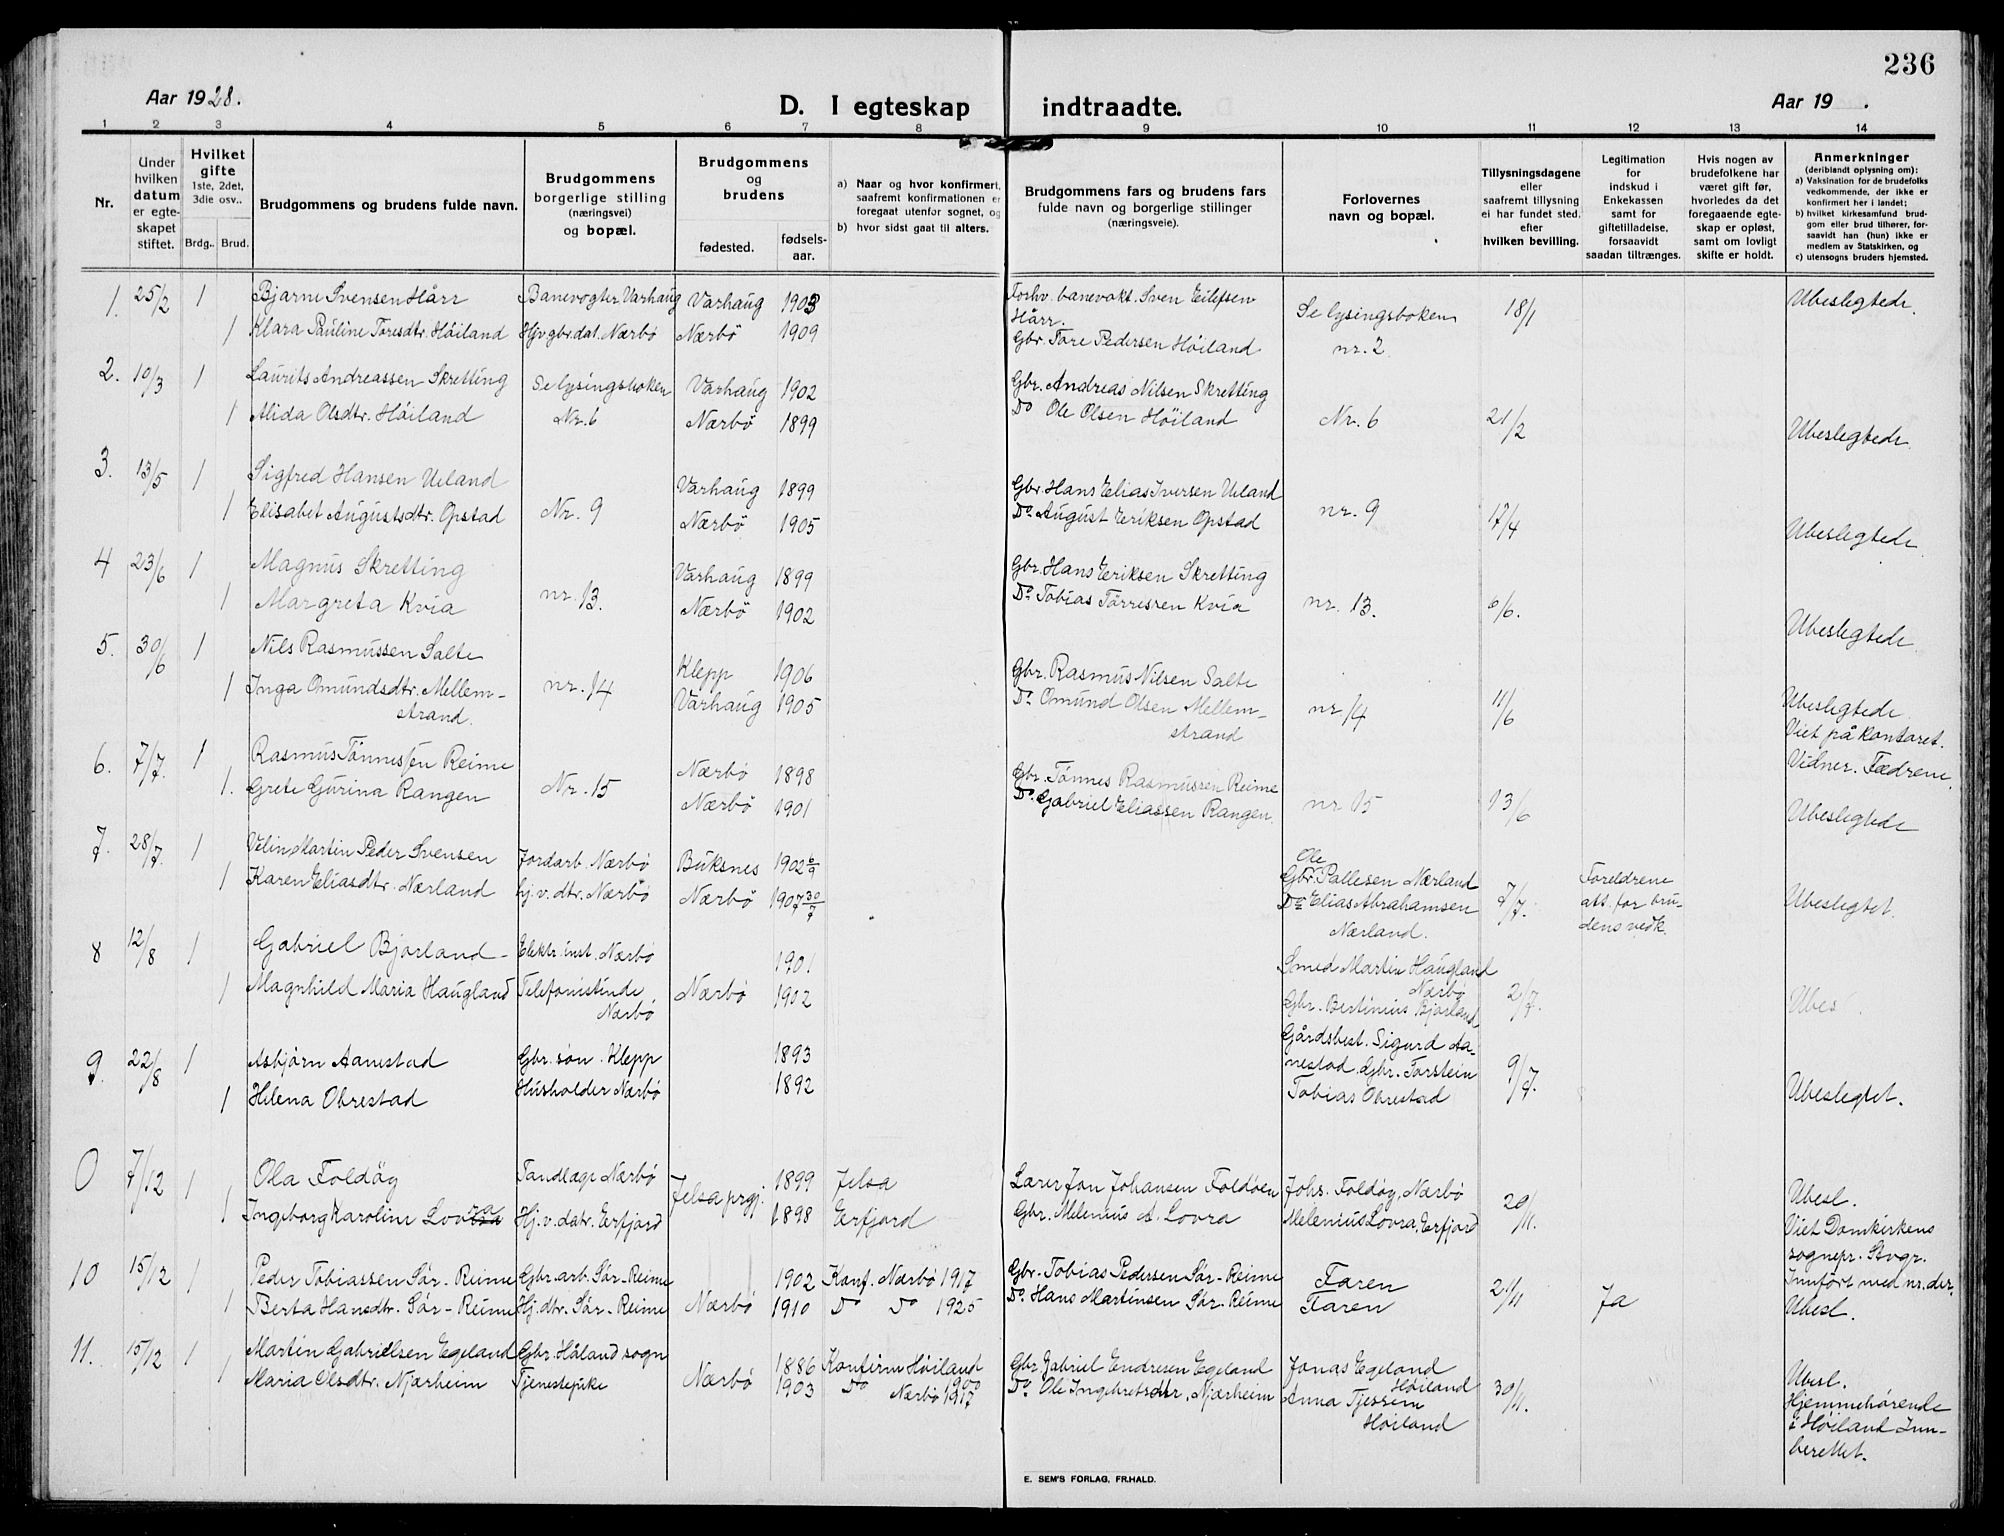 236
Aar 1928.
D. I egteskap indtraadte.
Aar 19 .
1 2 3 4 5 6 7 8 9 10 11 12 13 14
Nr.
Under hvilken datum er egteskapet stiftet.
Hvilket gifte 1ste, 2det, 3die osv..
Brdg.. Brud.
Brudgommens og brudens fulde navn.
Brudgommens borgerlige stilling (næringsvei) og bopæl.
Brudgommens og brudens
fødested. fødselsaar.
a) Naar og hvor konfirmert, saafremt konfirmationen er foregaat utenfor sognet, og
b) hvor sidst gaat til alters.
Brudgommens fars og brudens fars fulde navn og borgerlige stillinger (næringsveie).
Forlovernes navn og bopæl.
Tillysningsdagene eller saafremt tillysning ei har fundet sted, efter hvilken bevilling.
Legitimation for indskud i Enkekassen samt for giftetilladelse, forsaavidt saadan tiltrænges.
Hvis nogen av brudefolkene har været gift før, hvorledes da det foregaaende egteskap er opløst, samt om lovligt skifte er holdt.
Anmerkninger (deriblandt oplysning om):
a) Vaksination for de brudefolks vedkommende, der ikke er konfirmert her i landet;
b) hvilket kirkesamfund brudgom eller brud tilhører, forsaavidt han (hun) ikke er medlem av Statskirken, og
c) utensogns bruders hjemsted.
1. 25/2 1 Bjarne Svensen Hårr Banevogter Varhaug Varhaug 1903 Forhv. banevokt. Sven Eilefsen Hårr. Se lysingsboken nr. 2 18/1 Ubeslegtede.
1 Klara Pauline Toresdtr. Høiland Hjv gbr.dat. Nærbø Nærbö 1909 Gbr. Tore Pedersen Höiland
2. 10/3 1 Laurits Andreassen Skretting Se lysingsboken Nr. 6 Varhaug 1902 Gbr. Andreas Nilsen Skretting Nr. 6 21/2 Ubeslegtede.
1 Alida Olsdtr. Høiland Nærbö 1899 Do Ole Olsen Höiland
3. 13/5 1 Sigfred Hansen Ueland Nr. 9 Varhaug 1899 Gbr. Hans Elias Iversen Ueland nr. 9 17/4 Ubeslegtede.
1 Elisabet Augustsdtr. Opstad Nærbö 1905 Do. August Eriksen Opstad
4 23/6 1 Magnus Skretting nr. 13. Varhaug 1899 Gbr. Hans Eriksen Skretting nr. 13. 6/6. Ubeslegtede.
1 Margreta Kvia Nærbö 1902 Do. Tobias Törresen Kvia
5. 30/6 1 Nils Rasmussen Salte nr. 14 Klepp 1906 Gbr. Rasmus Nilsen Salte nr. 14 11/6 Ubeslegtede.
1 Inga Omundsdtr. Mellemstrand. Varhaug 1905 Do. Omund Olsen Mellemstrand Viet på kontoret. Vidner. Fædrene.
6. 7/7. 1 Rasmus Tönnessen Reime Nr. 15 Nærbö 1898 Gbr. Tönnes Rasmussen Reime nr 15 13/6 Ubeslegtede
1. Grete Gurina Rangen Nærbö 1901 Do. Gabriel Eliassen Rangen.
7. 28/7. 1 Martin Peder Svensen Jordarb. Nærbø Buksnes 1902 6/9 Ole Gbr. Pallesen Nærland 7/7. Foreldrene att. for brudens vedk. Ubeslegtet.
1 Karen Eliasdtr. Nærland hj. v. dtr. Nærbø Nærbö 1907 30/7 Do Elias Abrahamsen Nærland.
8 12/8 1 Gabriel Bjorland Elektr. inst. Nærbö 1901 Smed Martin Haugland Nærbø 2/7. Ubes
1 Magnhild Maria Haugland Telefonistinde Nærbø Nærbö 1902 Gbr. Bertinius Bjorland
9. 22/8 1 Asbjørn Aanestad Gbr. søn. Klepp 1893 Gårdsbest. Sigurd Aanestad. Gbr. Torstein 9/7. Ubeslegtet.
1 Helena Obrestad Husholder Nærbö 1892 Tobias Obrestad
0 7/12 1 Ola Foldöy Tandlæge Nærbö Jelsa prgj. 1899 Jelsa Lærer Jon Johansen Foldöen Johs. Foldöy, Nærbö 20/11. Ubesl.
1 Ingeborg Karoline Lovra Hj. v. datr. Erfjord 1898 Erfjord Gbr. Melenius A. Lovra Melenius Lovra, Erfjord Viet Domkirkens sognepr. Stvgr. Innført med nr. der.
10 15/12 1 Peder Tobiassen Sör-Reime Gbr. arb. Sör-Reime 1902 Konf. Nærbö 1917 Gbr. Tobias Pedersen Sör-Reime Faren 21/11 Ja Ubesl.
1 Berta Hansdtr. Sör-Reime Hj. dtr. Sör-Reime Nærbö 1910 Do Do 1925 Do. Hans Martinsen Sör-Reime Faren
11. 15/12 1 Martin Gabrielsen Egeland Gbr. Håland sogn 1886 Konfirm Höiland 1900 Gbr. Gabriel Endresen Egeland Jonas Egeland Höiland 30/11. Ubesl.
1 Maria Olsdtr. Njærheim Tjenestepike Nærbö 1903 Do Nærbö 1917 Do. Ole Ingebretsen, Njærheim Anna Tjessem Höiland Hjemmehørende i Höiland Innberettet.
E. SEM'S FORLAG, FR.HALD.